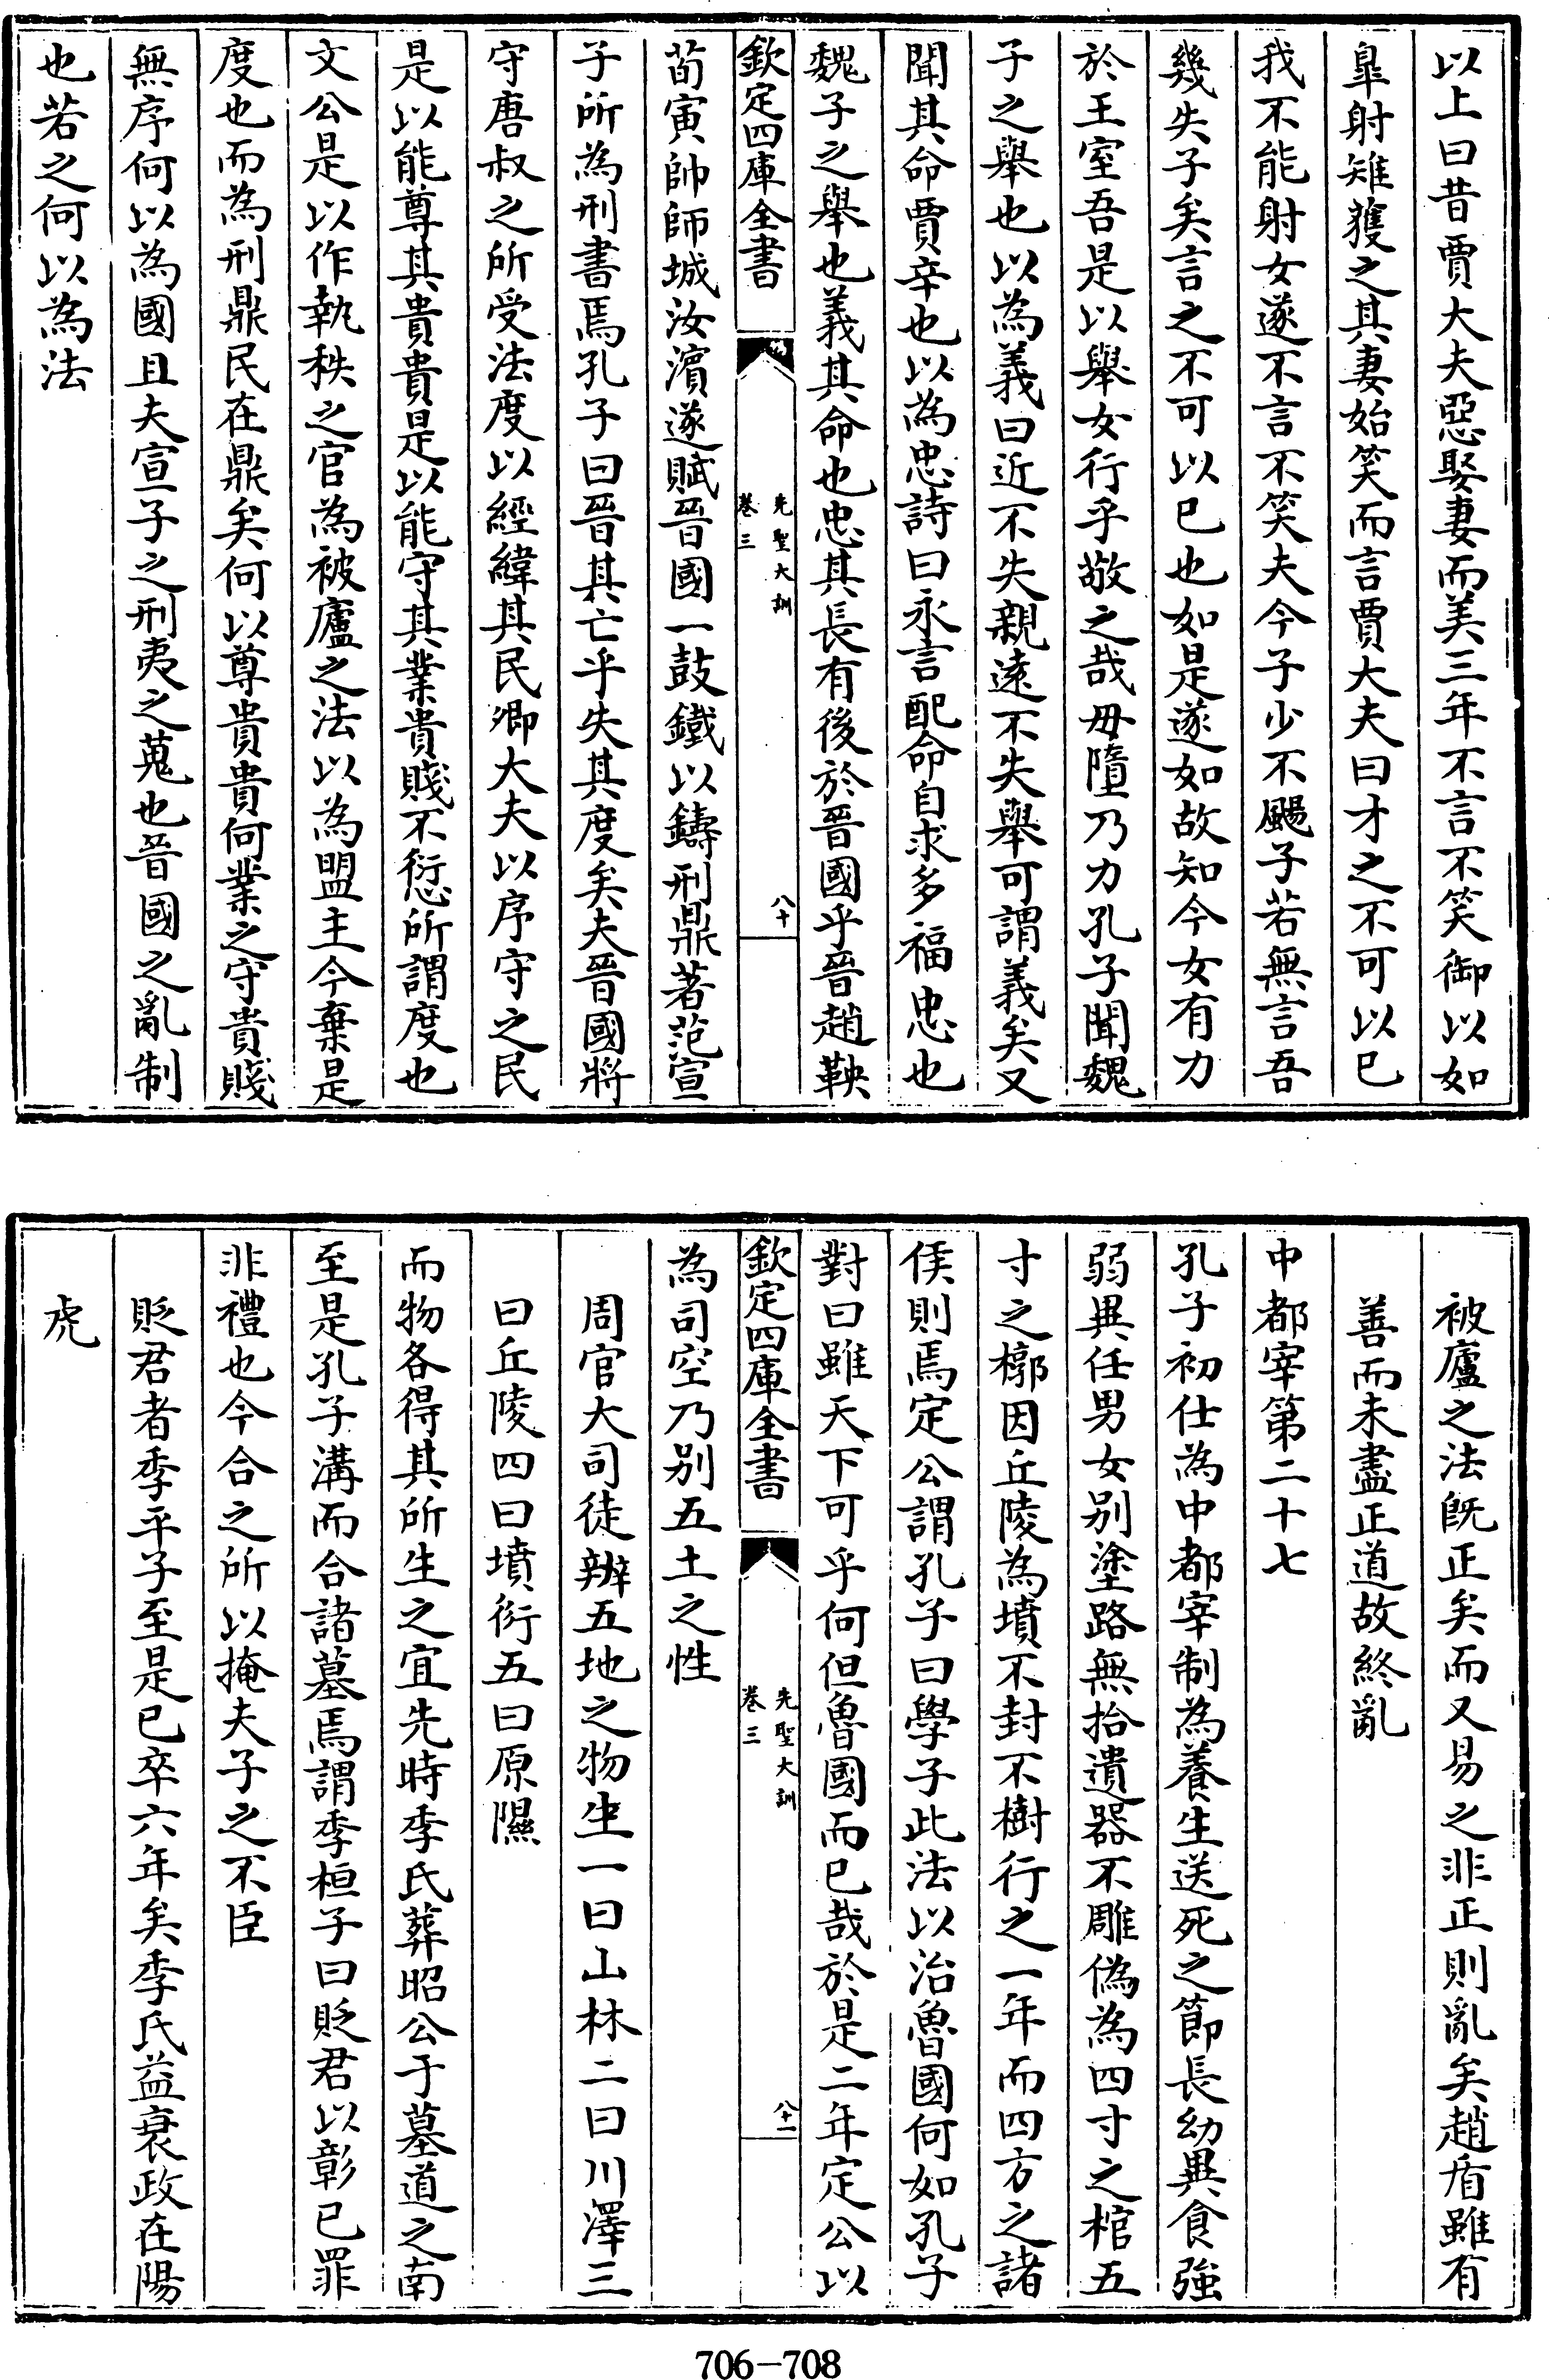 以上曰昔賈大夫惡娶妻而美三年不言不笑御以如
臯射雉獲之其妻始笑而言賈大夫曰才之不可以已
我不能射女遂不言不笑夫今子少不颺子若無言吾
幾失子矣言之不可以已也如是遂如故知今女有力
於王室吾是以舉女行乎敬之哉毋墮乃力孔子聞魏
子之舉也以為義曰近不失親遠不失舉可謂義矣又
聞其命賈辛也以為忠詩曰永言配命自求多福忠也
魏子之舉也義其命也忠其長有後於晉國乎晉趙鞅
欽定四庫全書
先聖大訓
卷三
八十
荀寅帥師城汝濱遂賦晉國一鼓鐵以鑄刑鼎著范宣
子所為刑書焉孔子曰晉其亡乎失其度矣夫晉國將
守唐叔之所受法度以經緯其民卿大夫以序守之民
是以能尊其貴貴是以能守其業貴賤不愆所謂度也
文公是以作執秩之官為被廬之法以為盟主今棄是
度也而為刑鼎民在鼎矣何以尊貴貴何業之守貴賤
無序何以為國且夫宣子之刑夷之蒐也晉國之亂制
也若之何以為法
被廬之法既正矣而又易之非正則亂矣趙盾雖有
善而未盡正道故終亂
中都宰第二十七
孔子初仕為中都宰制為養生送死之節長幼異食強
弱異任男女别塗路無拾遺器不雕偽為四寸之棺五
寸之槨因丘陵為墳不封不樹行之一年而四方之諸
侯則焉定公謂孔子曰學子此法以治魯國何如孔子
對曰雖天下可乎何但魯國而已哉於是二年定公以
欽定四庫全書
先聖大訓
卷三
八十一
為司空乃别五土之性
周官大司徒辨五地之物生一曰山林二曰川澤三
曰丘陵四曰墳衍五曰原隰
而物各得其所生之宜先時季氏葬昭公于墓道之南
至是孔子溝而合諸墓焉謂季桓子曰貶君以彰已罪
非禮也今合之所以掩夫子之不臣
貶君者季平子至是已卒六年矣季氏益衰政在陽
虎
706-708